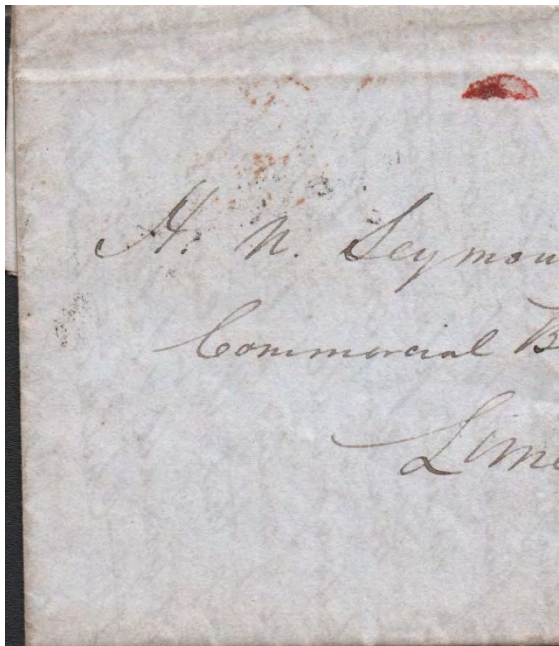 H. N. Seymou
Commercial B
Lime